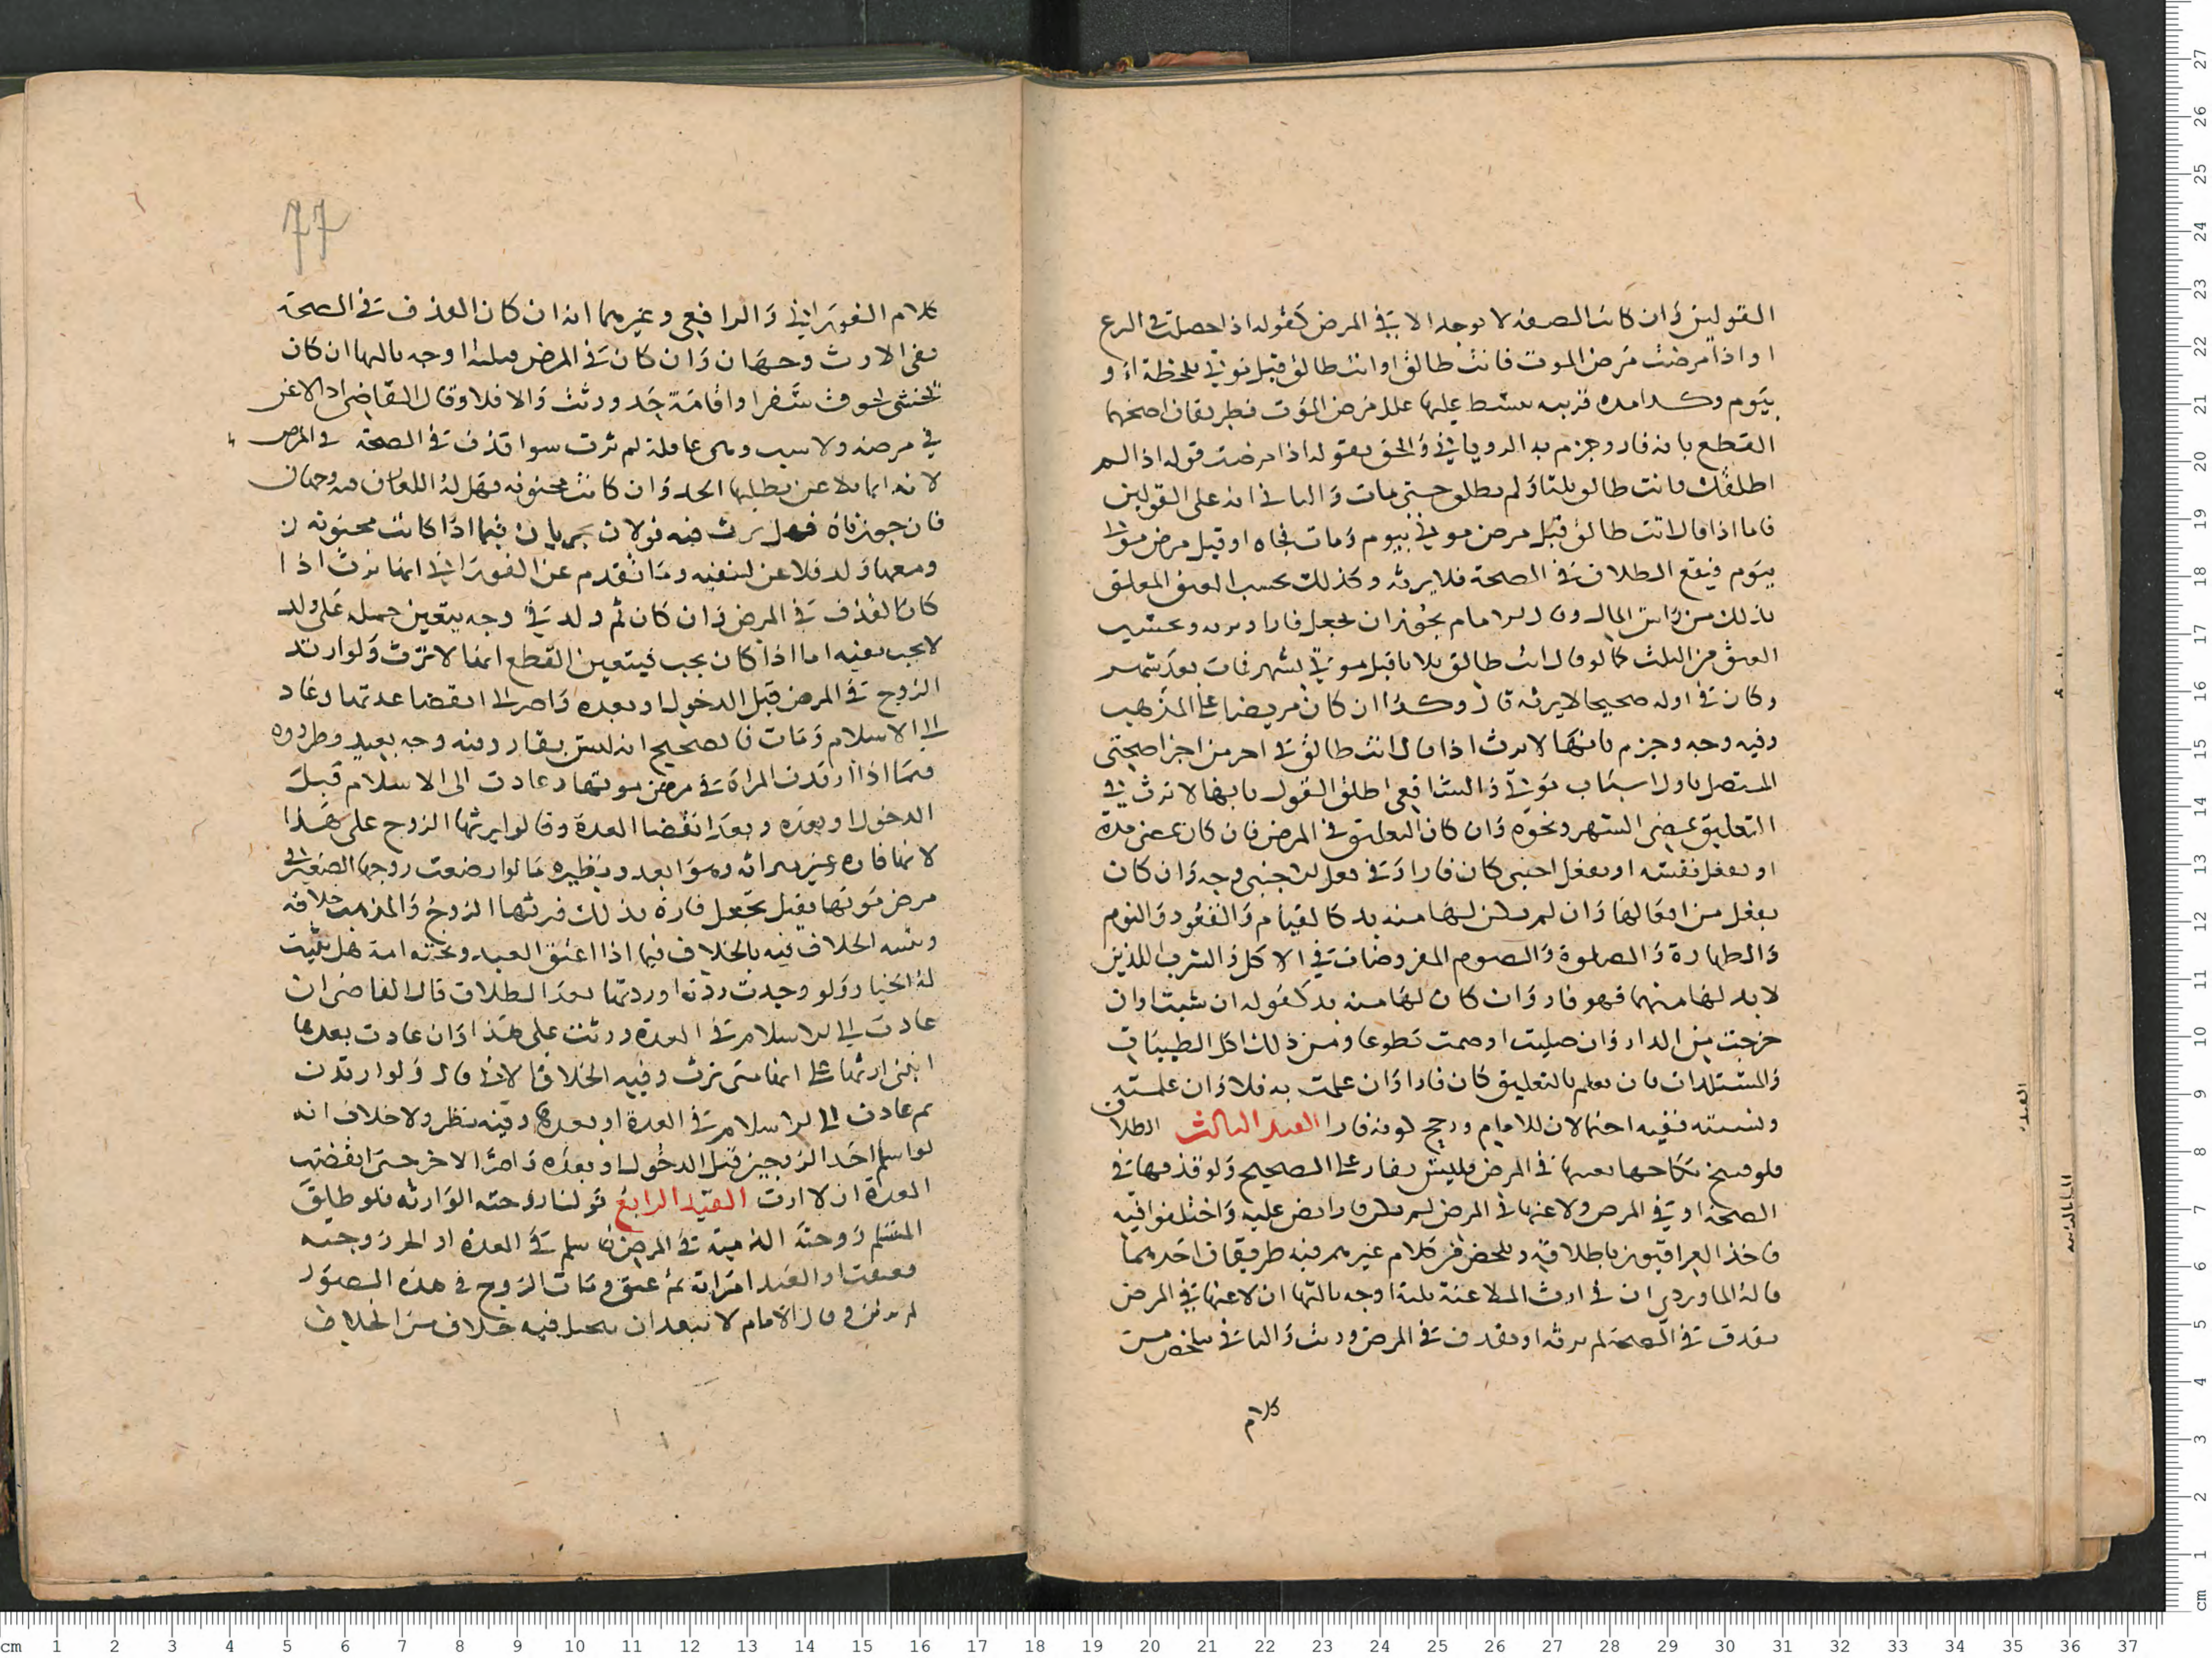 القولين وان كانت الصفة لا توجد الا في المرض كقوله اذا حصلت في النزع
او اذا مرضت مرض الموت فانت طالق او انت طالق قبل موتي بلحظة او
بيوم وكـ مدة قريبة علل مرض الموت فطريقان اصحهما
القطع بانه فار وجزم به الروياني والحق بقوله اذا مرضت قوله اذا لم
اطلقك فانت طالق ثلثا ولم يطلق حتى مات والثاني انه على القولين
فاما اذا قال انت طالق قبل مرض موتي بيوم ومات فجاه او قبل مرض موتي
بيوم فيقع الطلاق في الصحة فلا يرثه وكذلك يحسب العتق المعلق
بذلك من راس المال وقال الامام يجوز ان يجعل فارا ويحتسب
العتق من الثلث كما لو قال انت طالق ثلاثا قبل موتي بشهر فمات بعد شهر
وكان في اوله صحيحا لا يرثه قال وكذا ان كان مريضا على المذهب
وفيه وجه وجزم بانها لا ترث اذا قال انت طالق في اخر جزء من اجزا صحتي
المتصل باول اسباب موتي والشافعي اطلق القول بانها لا ترث في
التعليق بمضي الشهر ونحوه وان كان التعليق في المرض فان كان بمضي مدة
او بفعل نفسه او بفعل اجنبي كان فارا وفي فعل الاجنبي وجه وان كان
بفعل من افعالها وان لم يكن لها منه بد كالقيام والقعود والنوم
والطهارة والصلوة والصوم المفروضات في الاكل والشرب اللذين
لا بد لها منهما فهو فار وان كان لها منه بد كقوله ان شيت او ان
خرجت من الدار وان صليت او صمت تطوعا ومن ذلك اكل الطيبات
والمستلذات فان لم تعلم بالتعليق كان فارا وان علمت به فلا وان علمته
ونسيته ففيه احتمالان للامام ورجح كونه فارا القيد الثالث الطلاق
فلو فسخ نكاحها بعيبها في المرض فليس بفار على الصحيح ولو قذفها في
الصحة او في المرض ولاعنها في المرض لم يكن فارا نص عليه واختلفوا فيه
فاخذ العراقيون باطلاقه وتلخص من كلام غيرهم فيه طريقان احدهما
قاله الماوردي ان في ارث الملاعنة ثلثة اوجه ثالثها ان لاعنها في المرض
بقذف في الصحة لم ترثه او بقذف في المرض ورثت والثاني تلخص من
كلام
77
كلام الفوراني والرافعي وغيرهما انه ان كان القذف في الصحة
ففي الارث وجهان وان كان في المرض فثلثة اوجه ثالثها ان كان
لخشى لخوف سفرا واقامة حد ورثت والا فلا وقال القاضي اذا لاعن
في مرضه ولا سبب وهي عاملة لم ترث سوا قذف في الصحة في المرض
لانه انما يلاعن بطلبها الحد وان كانت مجنونة فهل له اللعان فيه وجهان
فان جوزناه فهل ترث فيه قولان يجريان فيما اذا كانت مجنونة
ومعها ولد فلاعن لنفيه وما تقدم عن الفوراني انها ترث اذا
كان القذف في المرض وان كان ثم ولد في وجه يتعين حمله على ولد
لا يجب نفيه اما اذا كان يجب فيتعين القطع انها لا ترث ولو ارتد
الزوج في المرض قبل الدخول او بعده واصر الى انقضا عدتها وعاد
الى الاسلام ومات فالصحيح انه ليس بفار وفيه وجه بعيد وطردوه
فيما اذا ارتدت المراة في مرض موتها وعادت الى الاسلام قبل
الدخول او بعده وبعد انقضا العدة وقالوا يرثها الزوج على هذا
لانها فارة عن ميراثه وهو ابعد ونظيره ما لو ارضعت زوجها الصغير في
مرض موتها فقيل تجعل فارة بذلك فيرثها الزوج والمذهب خلافه
وشبه الخلاف فيه بالخلاف فيما اذا اعتق العبد وتحته امة هل يثبت
له الخيار ولو وجدت ردته او ردتها بعد الطلاق قال القاضي ان
عادت الى الاسلام في العدة ورثت على هذا وان عادت بعدها
انبنى ارثها على انها متى ترث وفيه الخلاف الاتي قال ولو ارتدت
ثم عادت الى الاسلام في العدة او بعدها وفيه نظر ولا خلاف انه
لو اسلم احد الزوجين قبل الدخول او بعده واصر الاخر حتى انقضت
العدة ان لا ارث القيد الرابع قولنا زوجته الوارثة فلو طلق
المسلم زوجته الذمية في المرض فاسلم في العدة او الحر زوجته
فعتقت او العبد امراته ثم عتق ومات الزوج في هذه الصور
لم ترثه وقال الامام لا يبعد ان يحمل فيه خلاف من الخلاف